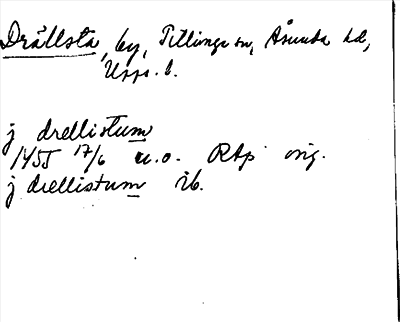 Drällsta, by, Tillinge sn, Åsunda hd,
Upps. l.
j drellistum
1455 17/6 u.o. RAp orig.
j drellistum ib.